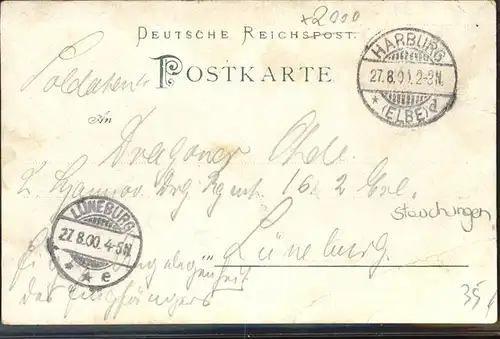 *2000
DEUTSCHE REICHSPOST.
POSTKARTE
HARBURG
27.8.00. 2-3N.
* (ELBE) d
An
Dragoner Ohde.
2. Hannov. Drg. Rgmt. 16. 2 Esc.
Stauchungen
LÜNEBURG
27.8.00. 4-5N.
* * e
Lüneburg.
des
35